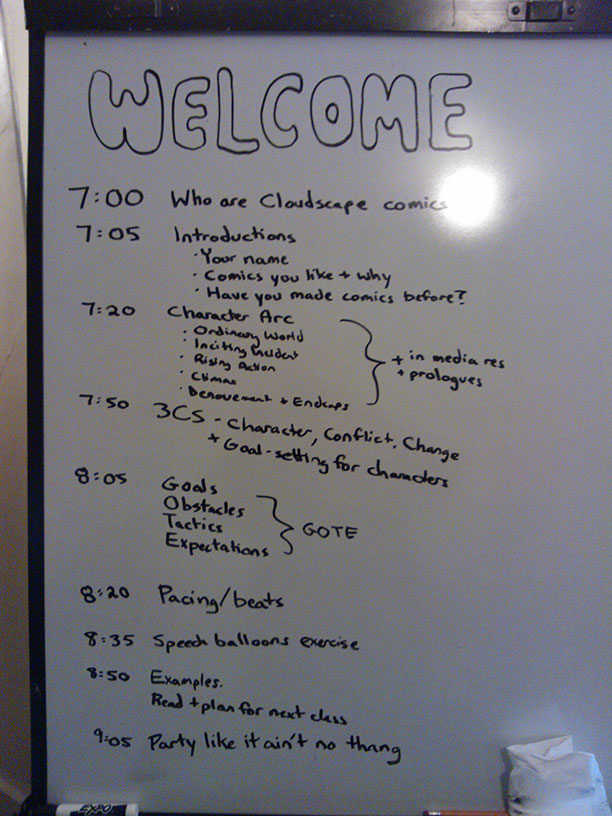 WELCOME
7:00 Who are Cloudscape comics
7:05 Introductions
· Your name
· Comics you like + why
· Have you made comics before?
7:20 Character Arc
· Ordinary World
· Inciting Incident
· Rising Action
· Climax
· Denouement + Endcaps
+ in media res
+ prologues
7:50 3CS - Character, Conflict, Change
+ Goal-setting for characters
8:05 Goals
Obstacles
Tactics
Expectations
GOTE
8:20 Pacing/beats
8:35 Speech balloons exercise
8:50 Examples.
Read + plan for next class
9:05 Party like it ain't no thang
EXPO